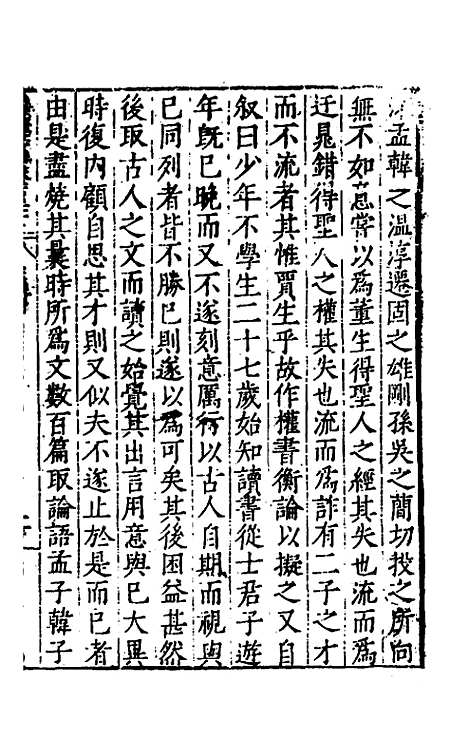 孟韓之温淳遷固之雄剛孫吳之簡切投之所向
無不如意嘗以爲董生得聖人之經其失也流而爲
迂晁錯得聖人之權其失也流而爲詐有二子之才
而不流者其惟賈生乎故作權書衡論以擬之又自
叙曰少年不學生二十七歲始知讀書從士君子遊
年旣已晚而又不遂刻意厲行以古人自期而視與
已同列者皆不勝已則遂以爲可矣其後困益甚然
後取古人之文而讀之始覺其出言用意與已大異
時復內顧自思其才則又似夫不遂止於是而已者
由是盡燒其曩時所爲文數百篇取論語孟子韓子